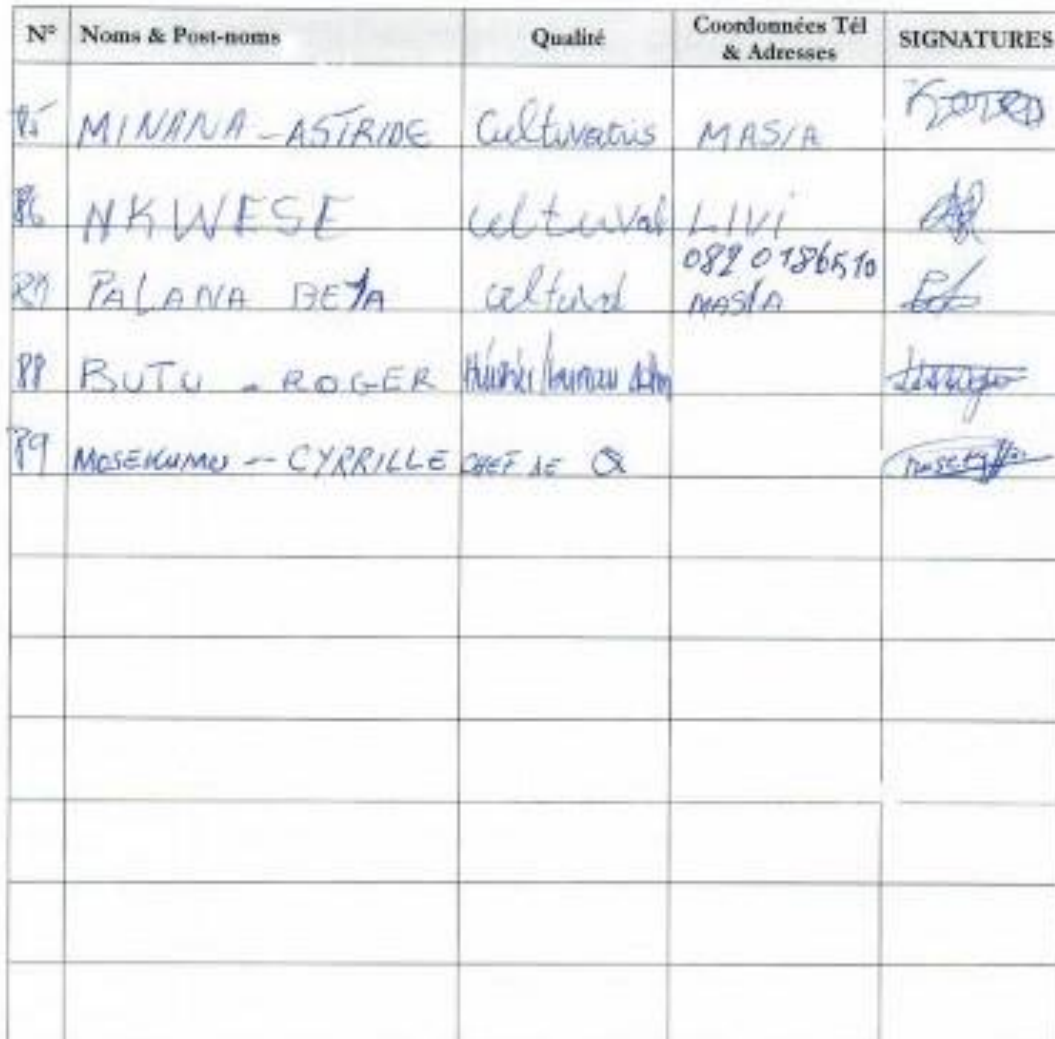 N° Noms & Post-noms Qualité Coordonnées Tél & Adresses SIGNATURES
85 MINANA - ASTRIDE Cultivatris MASIA
86 NKWESE cultuval LIVI
87 PALANA BEYA cultuval 0820186510 MASIA
88 BUTU - ROGER
89 MOSEKUMU - CYRRILLE CHEF DE Q